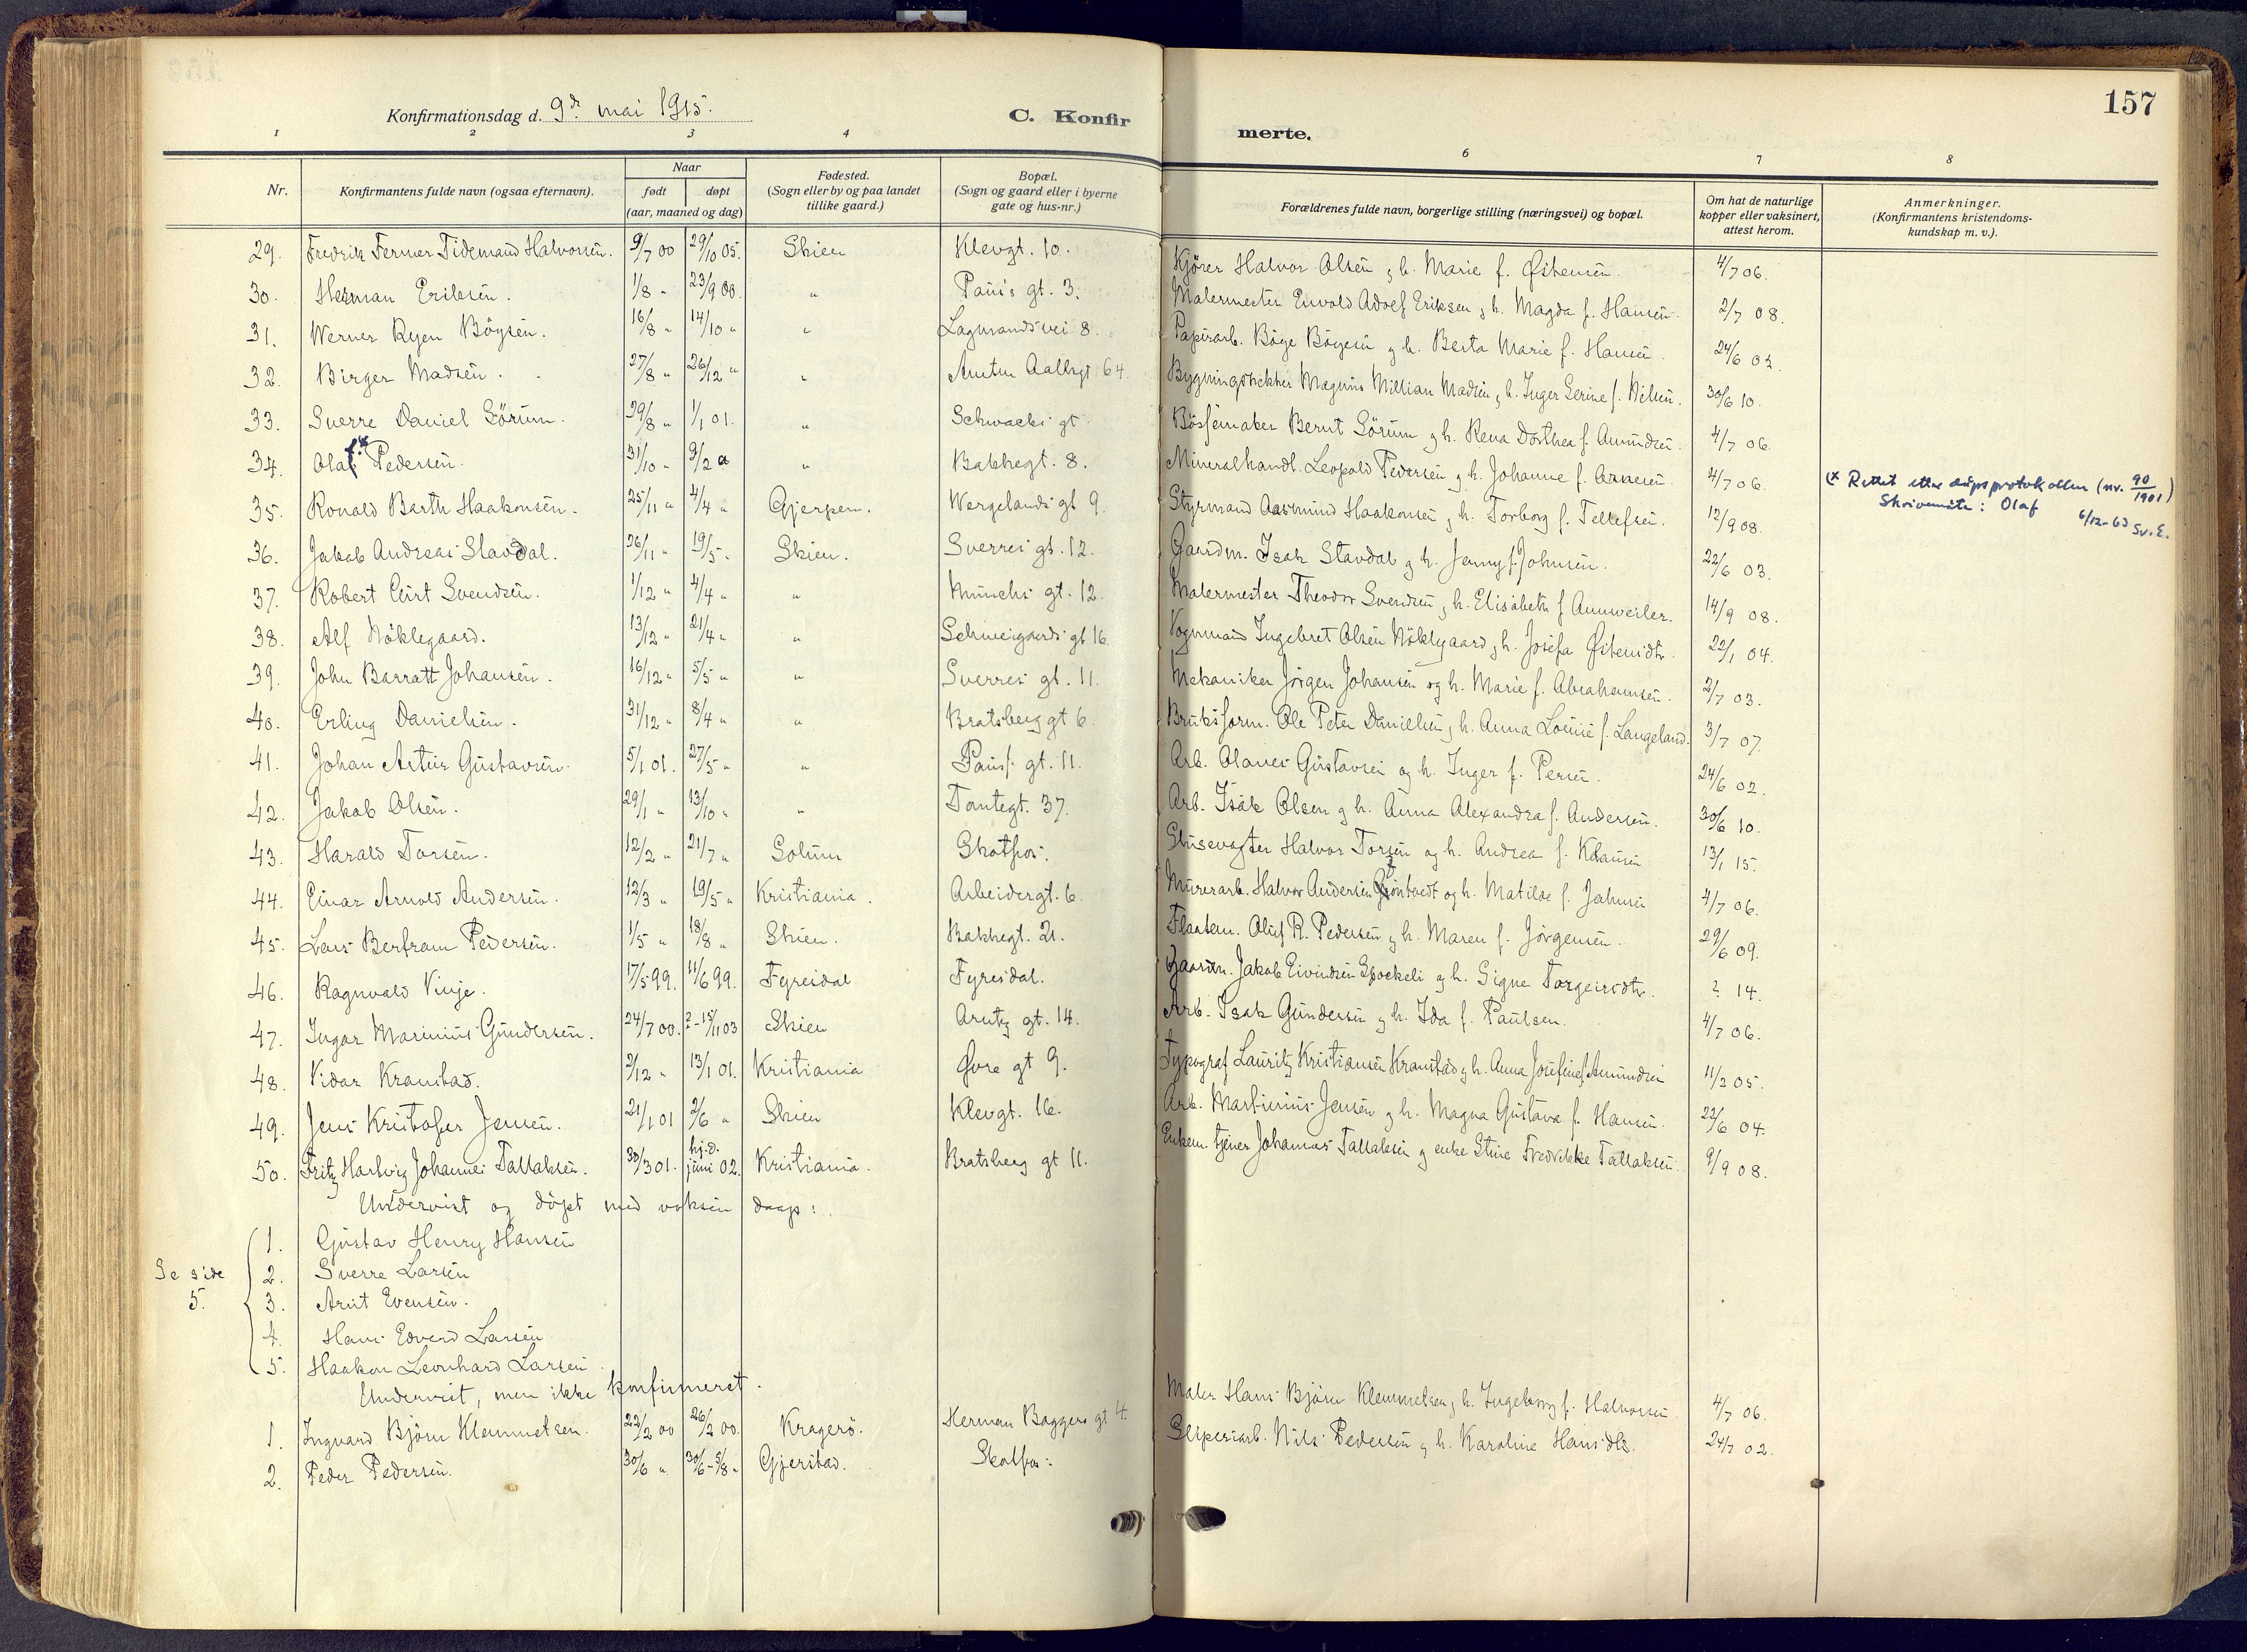 157
Konfirmationsdag d. 9de mai 1915. C. Konfir merte.
1 2 3 4 6 7 8
Nr. Konfirmantens fulde navn (ogsaa efternavn). Naar født døpt (aar, maaned og dag) Fødested. (Sogn eller by og paa landet tillike gaard.) Bopæl. (Sogn og gaard eller i byerne gate og hus-nr.) Forældrenes fulde navn, borgerlige stilling (næringsvei) og bopæl. Om hat de naturlige kopper eller vaksinert, attest herom. Anmerkninger. (Konfirmantens kristendoms- kundskap m. v.).
29. Fredrik Ferner Tidemand Halvorsen. 9/7 00 29/10 05. Skien Klevgt. 10. Kjörer Halvor Olsen g h. Marie f. Østensen. 4/7 06.
30. Herman Eriksen. 1/8 " 23/9 00. " Paus's gt. 3. Malermester Envold Adolf Eriksen g h. Magda f. Hansen. 2/7 08.
31. Werner Ryen Böysen. 16/8 " 14/10 " " Lagmandsvei 8. Papirarb. Böye Böyesen g h. Berta Marie f. Hansen. 24/6 02.
32. Birger Madsen. 27/8 " 26/12 " " Amtm Aallsgt 64. Magnus Millian Madsen g h. Inger Serine f. Nilsen. 30/6 10.
33. Sverre Daniel Sörum. 29/8 " 1/1 01. " Schwachs gt Bössemaker Bernt Sörum g h. Rena Dorthea f. Amundsen. 4/7 06.
34. Olaf x Pedersen. 31/10 " 9/2 " " Bakkegt. 8. Mineralhandl. Leopold Pedersen g h. Johanne f. Arnesen. 4/7 06.
(x Rettet etter dåpsprotokollen (nr. 90/1901)
Skrivemåte: Olaf 6/12-63 Sv. E.
35. Ronald Barth Haakonsen. 25/11 " 4/4 " Gjerpen. Wergelands gt 9. Styrmand Aasmund Haakonsen g h. Torborg f. Tellefsen. 12/9 08.
36. Jakob Andreas Stavdal. 26/11 " 19/5 " Skien. Sverres gt. 12. Gaardm. Isak Stavdal g h. Jenny f. Johnsen. 22/6 03.
37. Robert Curt Svendsen. 1/12 " 4/4 " " Munchs gt. 12. Malermester Theodor Svendsen g h. Elisabeth f. Annweiler. 14/9 08.
38. Alf Nöklegaard. 13/12 " 21/4 " " Schweigaards gt 16. Vognmand Ingebret Olsen Nöklegaard g h. Josefa Østensdtr. 22/1 04.
39. John Barratt Johansen. 16/12 " 5/5 " " Sverres gt. 11. Mekaniker Jörgen Johansen og h. Marie f. Abrahamsen. 2/7 03.
40. Erling Danielsen. 31/12 " 8/4 " " Bratsberg gt 6. Bruksform. Ole Peter Danielsen g h. Anna Lovise f. Langeland. 3/7 07.
41. Johan Artur Gustavsen. 5/1 01. 27/5 " " Paus's gt. 11. Arb. Olaves Gustavsen og h. Inger f. Persen. 24/6 02.
42. Jakob Olsen. 29/1 " 13/10 " " Tomtegt. 37. Arb. Isak Olsen g h. Anna Alexandra f. Andersen. 30/6 10.
43. Harald Torsen. 12/2 " 21/7 " Solum Skotfos. Slusevogter Halvor Torsen og h. Andrea f. Klausen 13/1 15.
44. Einar Arnold Andersen. 12/3 " 19/5 " Kristiania. Arbeidergt. 6. Murerarb. Halvor Andersen og h. Matilde f. Jahnsen 4/7 06.
45. Lars Bertram Pedersen. 1/5 " 18/8 " Skien. Bakkegt. 21. Flaatem. Oluf R. Pedersen g h. Maren f. Jörgensen. 29/6 09.
46. Ragnvald Vinje. 17/5 99. 11/6 99. Fyresdal Fyresdal. Gaardm. Jakob Eivindsen Spockeli g h. Signe Torgeirsdtr. ? 14.
47. Ingar Marinius Gundersen. 24/7 00. 2-15/11 03 Skien Arntz gt. 14. Arb. Isak Gundersen g h. Ida f. Paulsen. 4/7 06.
48. Vidar Kranstad. 2/12 " 13/1 01. Kristiania Övre gt 9. Typograf Lauritz Kristiansen Kranstad g h. Anna Josefine f. Amundsen 11/2 05.
49. Jens Kristofer Jensen. 21/1 01 2/6 " Skien Klevgt. 16. Arb. Martinius Jensen g h. Magna Gustava f. Hansen. 22/6 04.
50. Fritz Hartvig Johannes Tallaksen. 30/3 01. hj.d. juni 02. Kristiania. Bratsberg gt 11. tjener Johannes Tallaksen g enke Stine Fredrikke Tallaksen. 9/9 08.
Undervist og döpt med voksen daap:
1. Gustav Henry Hansen
Se side 2. Sverre Larsen
5. 3. Arnt Evensen.
4. Hans Edvard Larsen
5. Haakon Leonhard Larsen
Undervist, men ikke konfirmeret.
1. Ingvard Björn Klemmetsen. 22/2 00 26/2 00. Kragerö. Herman Baggers gt 4. Maler Hans Björn Klemmetsen g h. Ingeborg f. Halvorsen 4/7 06.
2. Peder Pedersen. 30/6 " 30/6-5/8 " Gjerstad. Skotfos. Sliperiarb. Nils Pedersen g h. Karoline Hansdtr. 24/7 02.